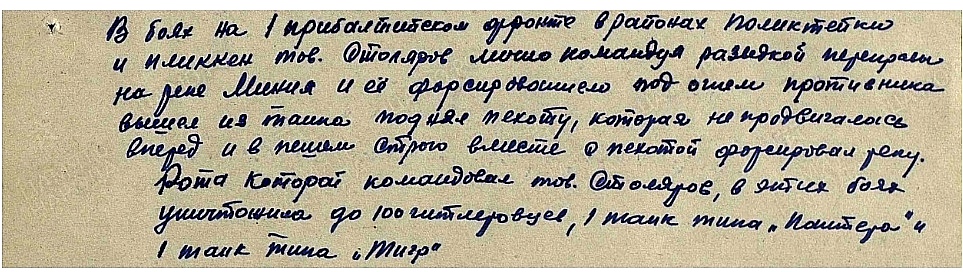 В боях на 1 прибалтитском фронте в районах Поликтейки
и пликкен тов. Столяров лично командуя разведкой переправы
на реке Миния и её форсированием под огнем противника
вышел из танка поднял пехоту, которая не продвигалась
вперед и в пешем строю вместе с пехотой форсировал реку.
Рота которой командовал тов. Столяров, в этих боях
уничтожила до 100 гитлеровцев, 1 танк типа „Пантера" и
1 танк типа „Тигр"